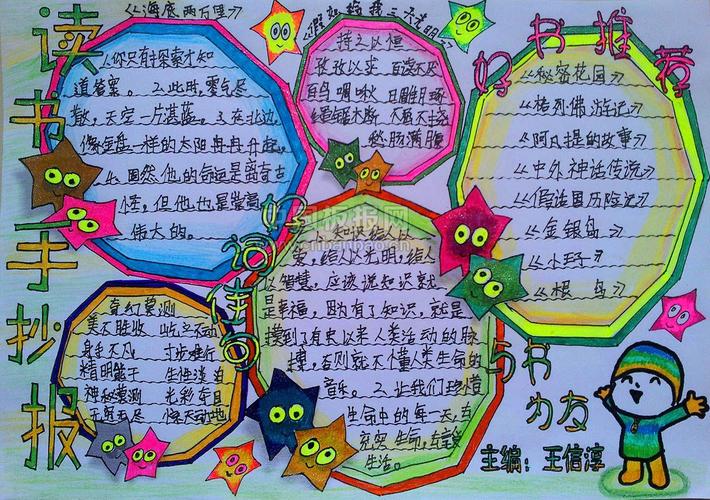 读书手抄报
《海底两万里》
1.你只有探索才知
道答案。2.此时,雾气尽
散,天空一片湛蓝。3.在北边,
像金盘一样的太阳冉冉升起。
4.固然,他的命运是离奇古
怪,但他也是崇高
伟大的。
《假如给我三天光明》
持之以恒
孜孜以求 百读不厌
百鸟啁啾
不屈不挠
愁肠满腹
好书推荐
《秘密花园》
《格列佛游记》
《阿凡提的故事》
《中外神话传说》
《假话国历险记》
《金银岛》
《小王子》
《根鸟》
好词佳句
美不胜收
身手不凡 寸步难行
精明能干 生性淡泊
神秘莫测 光彩夺目
无穷无尽 惊天动地
1.知识给人以
爱,给人以光明,给人
以智慧,应该说知识就
是幸福,因为有了知识,就是
摸到了有史以来人类活动的脉
搏,否则就不懂人类生命的
音乐。2.让我们珍惜
生命中的每一天,去
充实生命,去享受
生活。
与书
为友
主编:王信淳